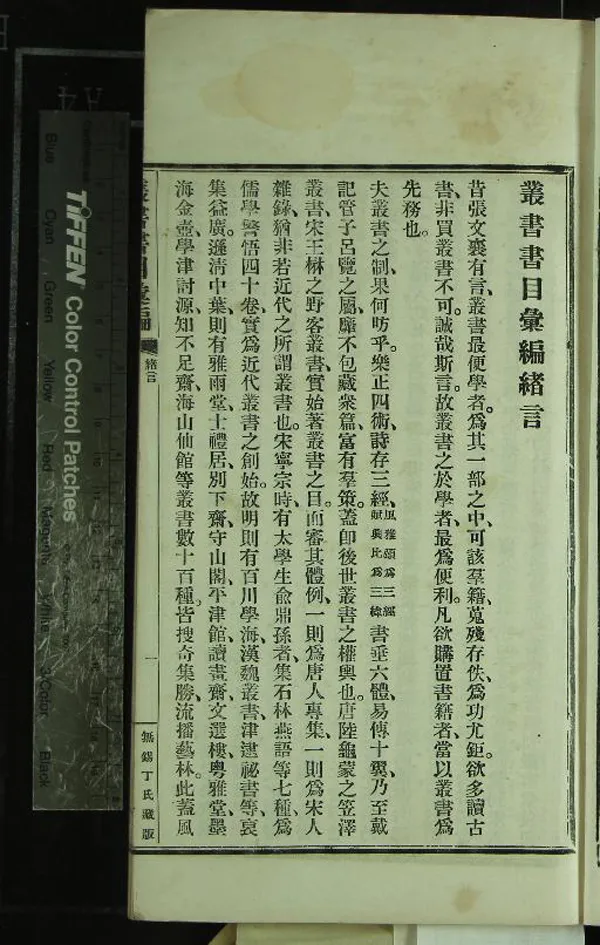 叢書書目彙編緒言
昔張文襄有言、叢書最便學者、爲其一部之中、可該羣籍、蒐殘存佚、爲功尤鉅。欲多讀古
書、非買叢書不可。誠哉斯言。故叢書之於學者、最爲便利。凡欲購置書籍者、當以叢書爲
先務也。
夫叢書之制、果何昉乎。樂正四術、詩存三經、風雅頌爲三經賦興比爲三緯書垂六體、易傳十翼、乃至戴
記管子呂覽之屬、靡不包藏衆篇、富有羣策。蓋卽後世叢書之權輿也。唐陸龜蒙之笠澤
叢書、宋王楙之野客叢書、實始著叢書之目。而審其體例、一則爲唐人專集、一則爲宋人
雜錄、猶非若近代之所謂叢書也。宋寧宗時、有太學生俞鼎孫者、集石林燕語等七種、爲
儒學警悟四十卷、實爲近代叢書之創始。故明則有百川學海、漢魏叢書、津逮祕書等、裒
集益廣。遜淸中葉、則有雅雨堂、士禮居、別下齋、守山閣、平津館、讀畫齋、文選樓、粵雅堂、墨
海金壺、學津討源、知不足齋、海山仙館等叢書數十百種、皆搜奇集勝、流播藝林。此蓋風
叢書書目彙編
緒言
一
無錫丁氏藏版
TIFFEN Color Control Patches
Blue
Cyan
Green
Yellow
Red
Magenta
White
Color
Black
A4